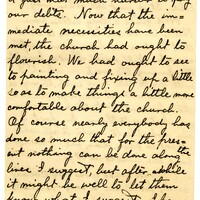 our debts. Now that the im-
mediate necessities have been
met, the church had ought to
flourish. We had ought to see
to painting and fixing up a little
so as to make things a little more
comfortable about the church.
Of course nearly everybody has
done so much that for the pres-
ent nothing can be done along the
lines I suggest, but after while
it might be well to let them
know what I suggest.